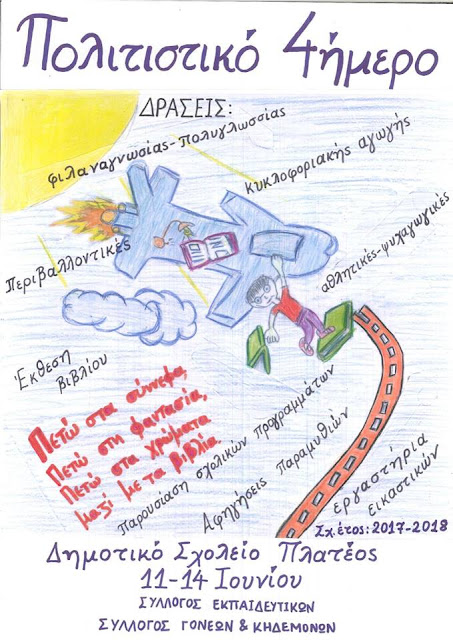 Πολιτιστικό 4ήμερο
ΔΡΑΣΕΙΣ:
φιλαναγνωσίας-πολυγλωσσίας
κυκλοφοριακής αγωγής
Περιβαλλοντικές
αθλητικές-ψυχαγωγικές
Έκθεση
βιβλίου
Πετώ στα σύννεφα,
Πετώ στη φαντασία,
Πετώ στα χρώματα
μαζί με τα βιβλία
παρουσίαση σχολικών προγραμμάτων
Αφηγήσεις παραμυθιών
εργαστήρια
εικαστικών
Σχ.έτος: 2017-2018
Δημοτικό Σχολείο Πλατέος
11-14 Ιουνίου
ΣΥΛΛΟΓΟΣ ΕΚΠΑΙΔΕΥΤΙΚΩΝ
ΣΥΛΛΟΓΟΣ ΓΟΝΕΩΝ & ΚΗΔΕΜΟΝΩΝ